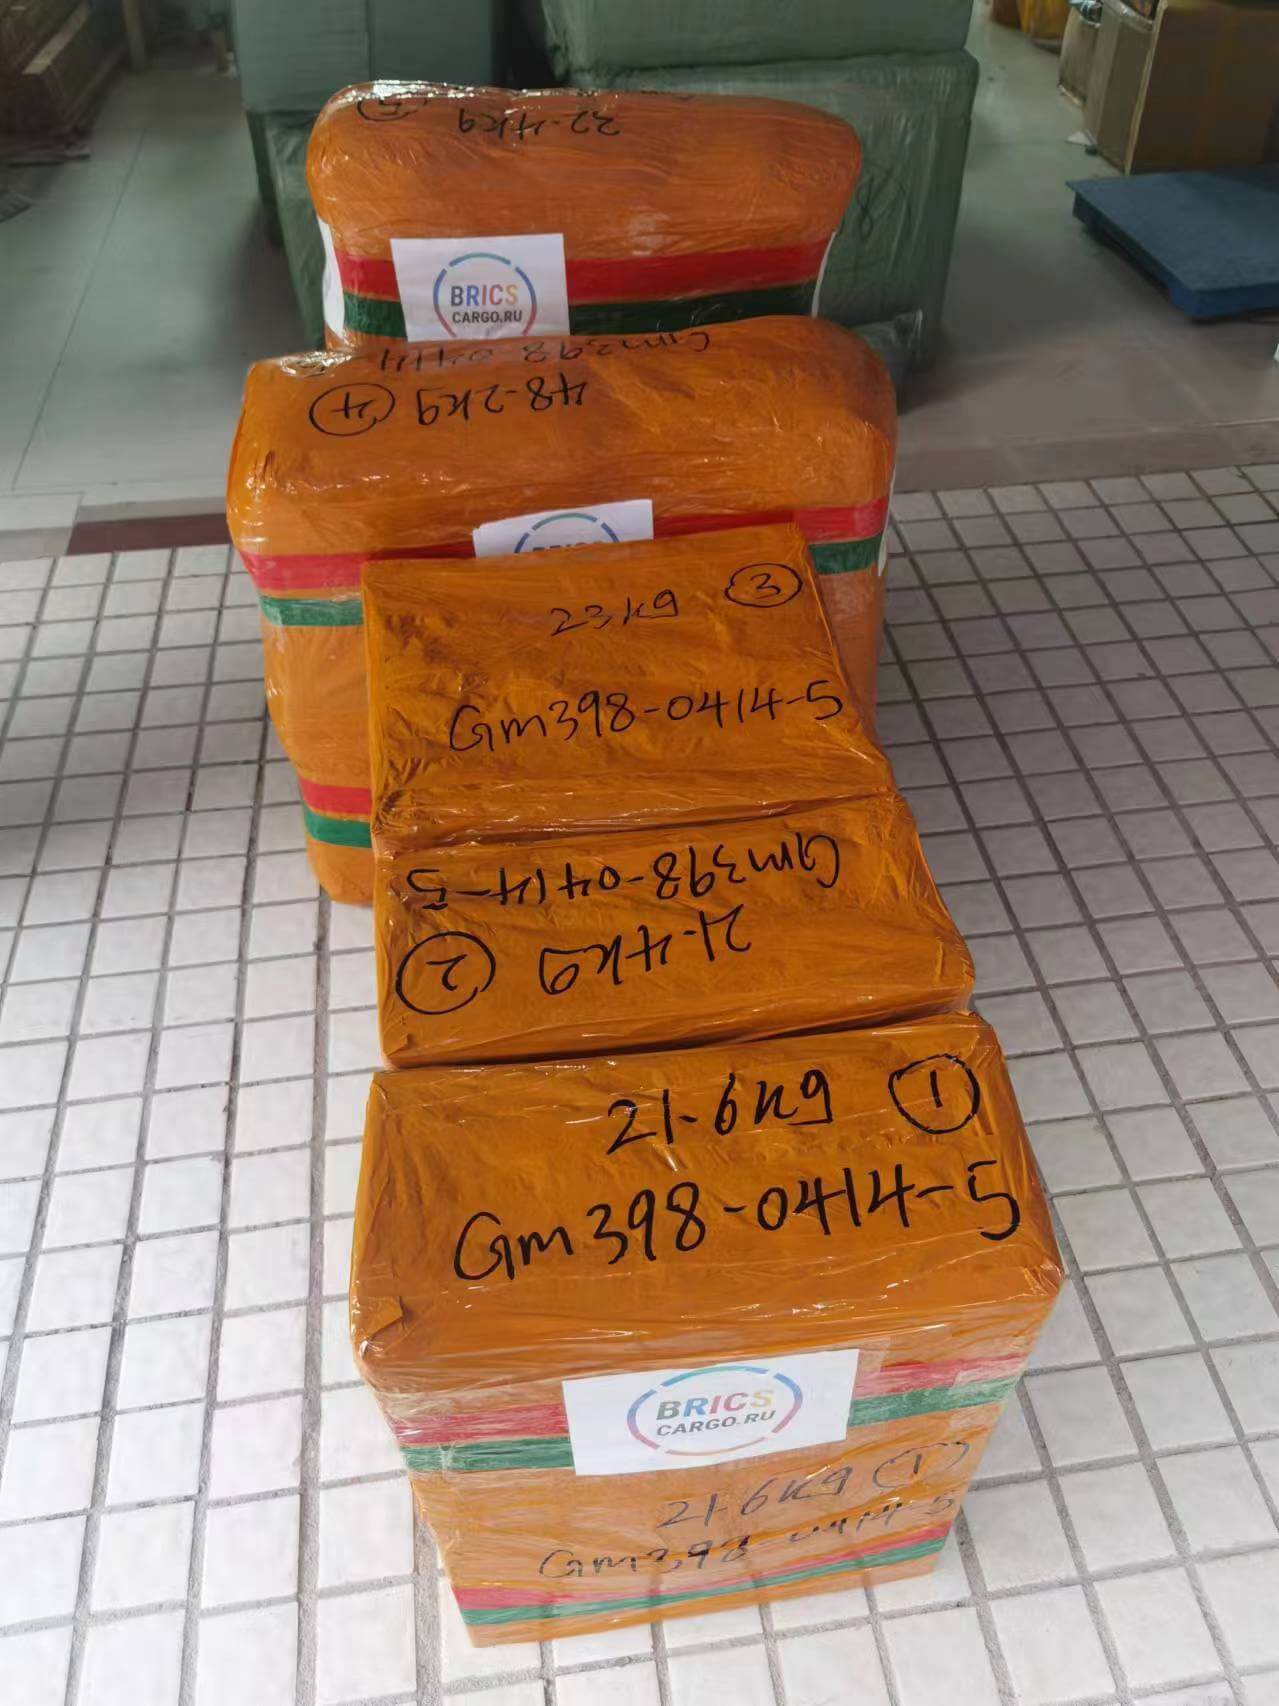 32.4kg 5
BRICS
CARGO.RU
Gm398-0414-5
48.2kg 4
BRICS
23kg 3
Gm398-0414-5
Gm398-0414-5
21.4kg 2
21.6kg 1
Gm398-0414-5
BRICS
CARGO.RU
21.6kg 1
Gm398-0414-5